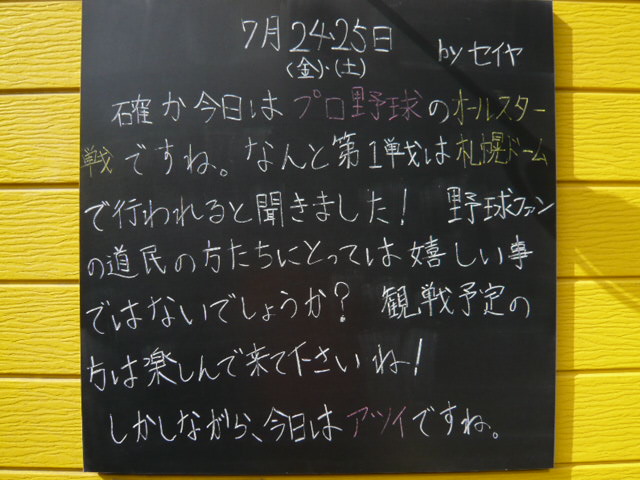 7月24・25日
(金)・(土) by セイヤ
石窪か今日はプロ野球のオールスター
戦ですね。なんと第1戦は札幌ドーム
で行われると聞きました! 野球ファン
の道民の方たちにとっては嬉しい事
ではないでしょうか? 観戦予定の
方は楽しんで来て下さいね!
しかしながら、今日はアツイですね。